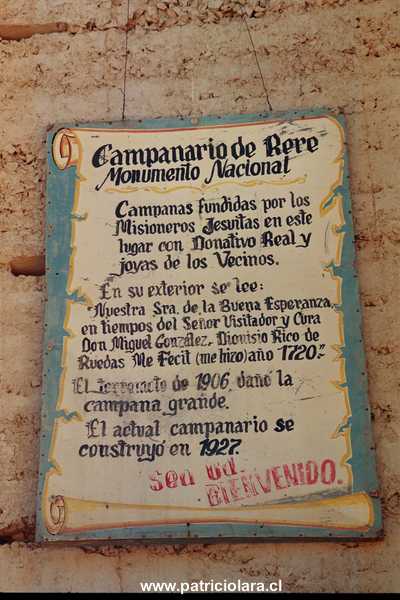 Campanario de Rere
Monumento Nacional
Campanas fundidas por los
Misioneros Jesuitas en este
lugar con Donativo Real y
joyas de los Vecinos.
En su exterior se lee:
"Nuestra Sra. de la Buena Esperanza,
en tiempos del Señor Visitador y Cura
Don Miguel González, Dionisio Rico de
Ruedas Me Fecit (me hizo) año 1720."
El terremoto de 1906, dañó la
campana grande.
El actual campanario se
construyó en 1927.
Sea Ud.
BIENVENIDO.
www.patriciolara.cl